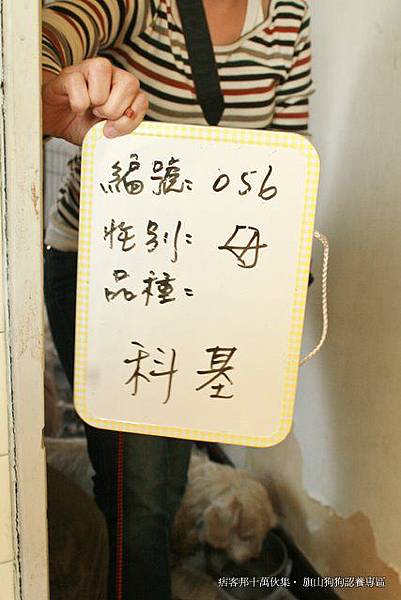 編號: 056
性別: 母
品種:
科基
痞客邦十萬伙集・旗山狗狗認養專區